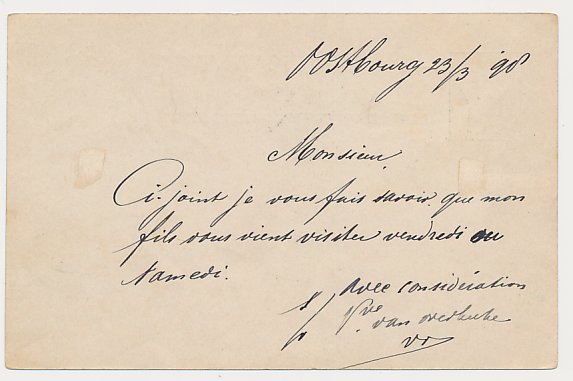 Oostbourg 23/3 '98
Monsieur
Ci-joint je vous fais savoir, que mon
fils vous vient visiter vendredi ou
samedi.
Avec considération
Vve van